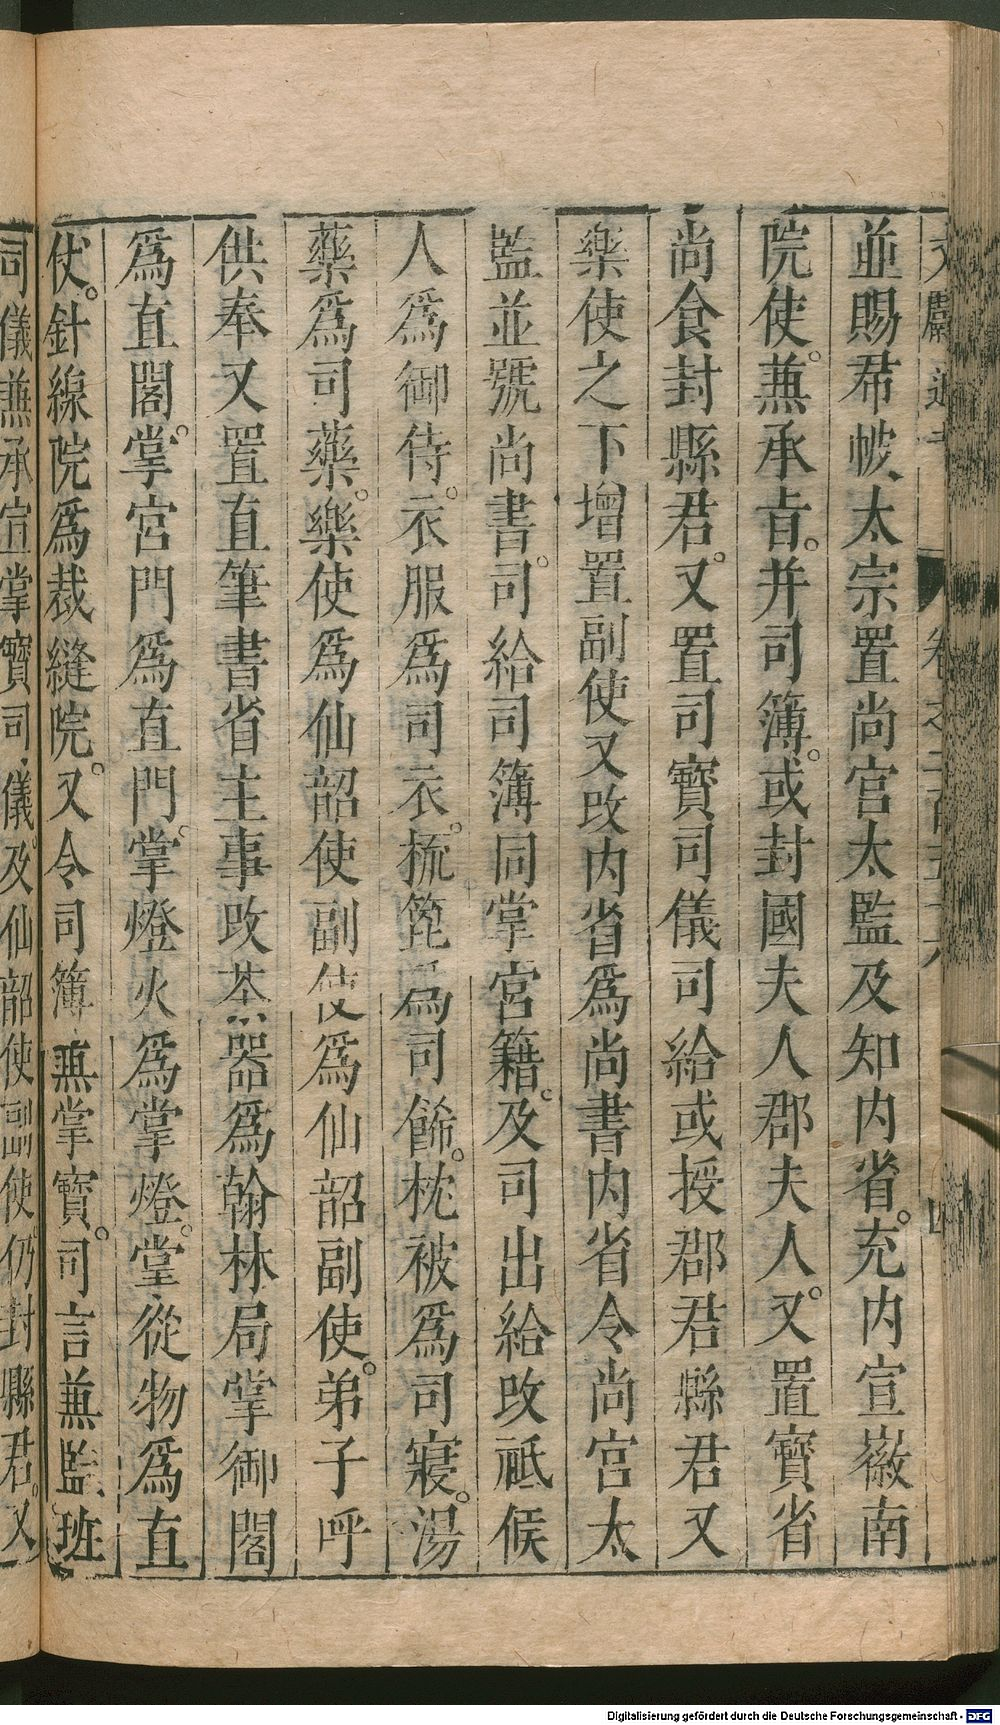 文獻通考 卷之二百五十六 四
並賜帬帔太宗置尚宮太監及知内省。充内宣徽南
院使。兼承旨。并司簿。或封國夫人郡夫人。又置寶省
尚食封縣君。又置司寶司儀司給或授郡君縣君又
樂使之下增置副使又改内省爲尚書内省令尚宮太
監並號尚書。司給司簿同掌宮籍。及司出給改祗候
人爲御侍。衣服爲司衣。梳篦爲司飾。枕被爲司寢。湯
藥爲司藥。樂使爲仙韶使副使爲仙韶副使。弟子呼
供奉又置直筆書省主事改茶器爲翰林局掌御閣
爲直閣。掌宮門爲直門。掌燈火爲掌燈。堂從物爲直
仗。針線院爲裁縫院。又令司簿兼掌寶。司言兼監班
司儀兼承宣掌寶司儀。及仙韶使副使仍封縣君。又
Digitalisierung gefördert durch die Deutsche Forschungsgemeinschaft - DFG